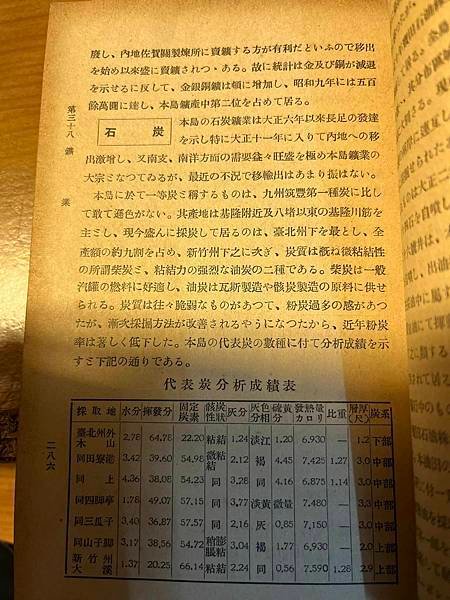 廢し、內地佐賀關製煉所に賣鑛する方が有利だといふので移出
を始め以來盛に賣鑛されつゝある。故に統計は金及び銅が減退
を示せるに反して、金銀銅鑛は頓に增加し、昭和九年には五百
餘萬圓に達し、本島鑛產中第二位を占めて居る。
石炭
本島の石炭鑛業は大正六年以來長足の發達
を示し特に大正十一年に入りて內地への移
出激增し、又南支、南洋方面の需要益々旺盛を極め本島鑛業の
大宗となつてゐるが、最近の不況で移輸出はあまり振はない。
本島に於て一等炭と稱するものは、九州筑豐第一種炭に比し
て敢て遜色がない。其產地は基隆附近及八堵以東の基隆川筋を
主とし、現今盛んに採炭して居るのは、臺北州下を最とし、全
產額の約九割を占め、新竹州下之に次ぎ、炭質は槪ね微粘結性
の所謂柴炭と、粘結力の强烈な油炭の二種である。柴炭は一般
汽罐の燃料に好適し、油炭は瓦斯製造や骸炭製造の原料に供せ
られる。炭質は往々脆弱なものがあつて、粉炭過多の感があつ
たが、漸次採掘方法が改善されるやうになつたから、近年粉炭
率は著しく低下した。本島の代表炭の數種に付て分析成績を示
すと下記の通りである。
代表炭分析成績表
採取地 水分 揮發分 固定炭素 骸炭性狀 灰分 灰色分相 硫黃分 發熱量カロリ 比重 層厚(尺) 炭系
臺北州外木山 2,78 64,78 22,20 粘結 1,24 淡江 1,20 6,930 — 1.2 下部
同田寮港 3.42 39.60 54,98 微粘結 2,12 褐 4,45 7,425 1.27 3.0 中部
同上 4.36 38.08 54,23 同 3,28 同 4.16 6,875 1.14 3.0 中部
同四脚亭 1.78 49,07 57,15 同 3,77 淡黃 微量 7.480 — 3.3 中部
同三瓜子 3,40 36,87 57,57 同 2,16 灰 0,85 7,150 — 3.0 中部
同山子脚 3,17 38,56 54,72 稍膨脹粘 3,04 褐 1.77 6,930 — 3.0 上部
新竹州大溪 1.37 20.25 66,14 粘結 2,24 同 0,56 7.590 1.28 2.9 上部
第三十八 鑛業
二八六